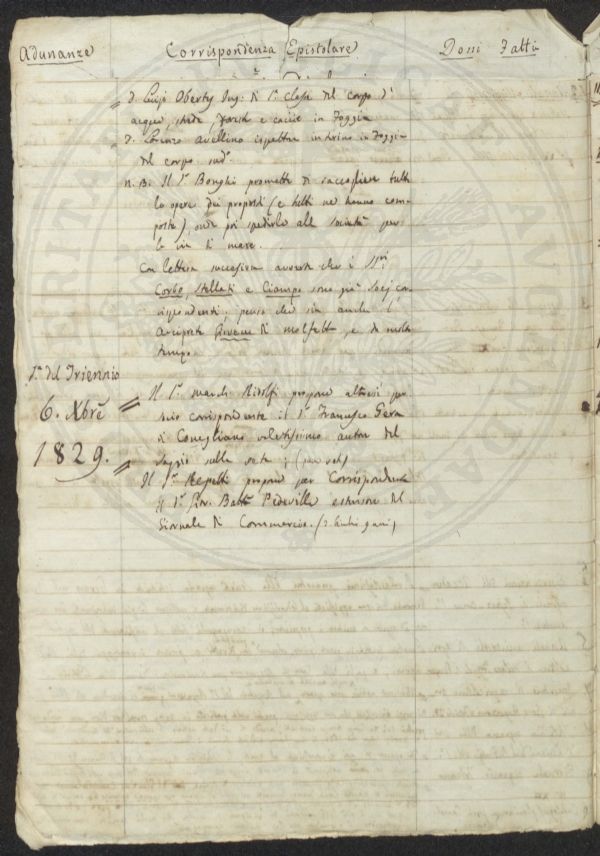 Adunanze Corrispondenza Epistolare Doni Fatti
D. Luigi Oberty Ing. di 1.a Classe del Corpo di
acque, strade, foreste e caccie in Foggia
D. Lorenzo Avellino ispettore in Foggia
del corpo sud.o
N. B. Il S.r Bonghi promette di raccogliere tutte
le opere dei proposti (e tutti ne hanno com-
poste), onde poi spedirle alla Società per
la via di mare.
Con lettera successiva avverte che i SS.ri
Corbo, Stellati e Ciampo sono già Socj cor-
rispondenti; pensa che sia anche l'
Arciprete Giovene di Molfetta, e da molto
tempo
1.a del Triennio
6. Xbre
1829.
Il S.r March. Ridolfi propone altresì per
Socio corrispondente il S.r Francesco Gera
di Conegliano valentissimo autor del
Saggio sulla seta;
Il S.r Repetti propone per Corrispondente
il S.r Gio. Batta estensore del
Giornale di Commercio.